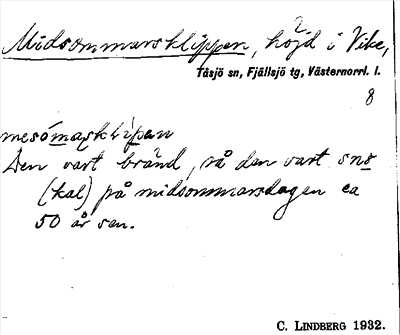 Midsommarsklippen, höjd i Vike,
Tåsjö sn, Fjällsjö tg, Västernorrl. l.
8
Den vart bränd, så den vart
(kal) på midsommarsdagen ca
50 år sen.
C. LINDBERG 1932.